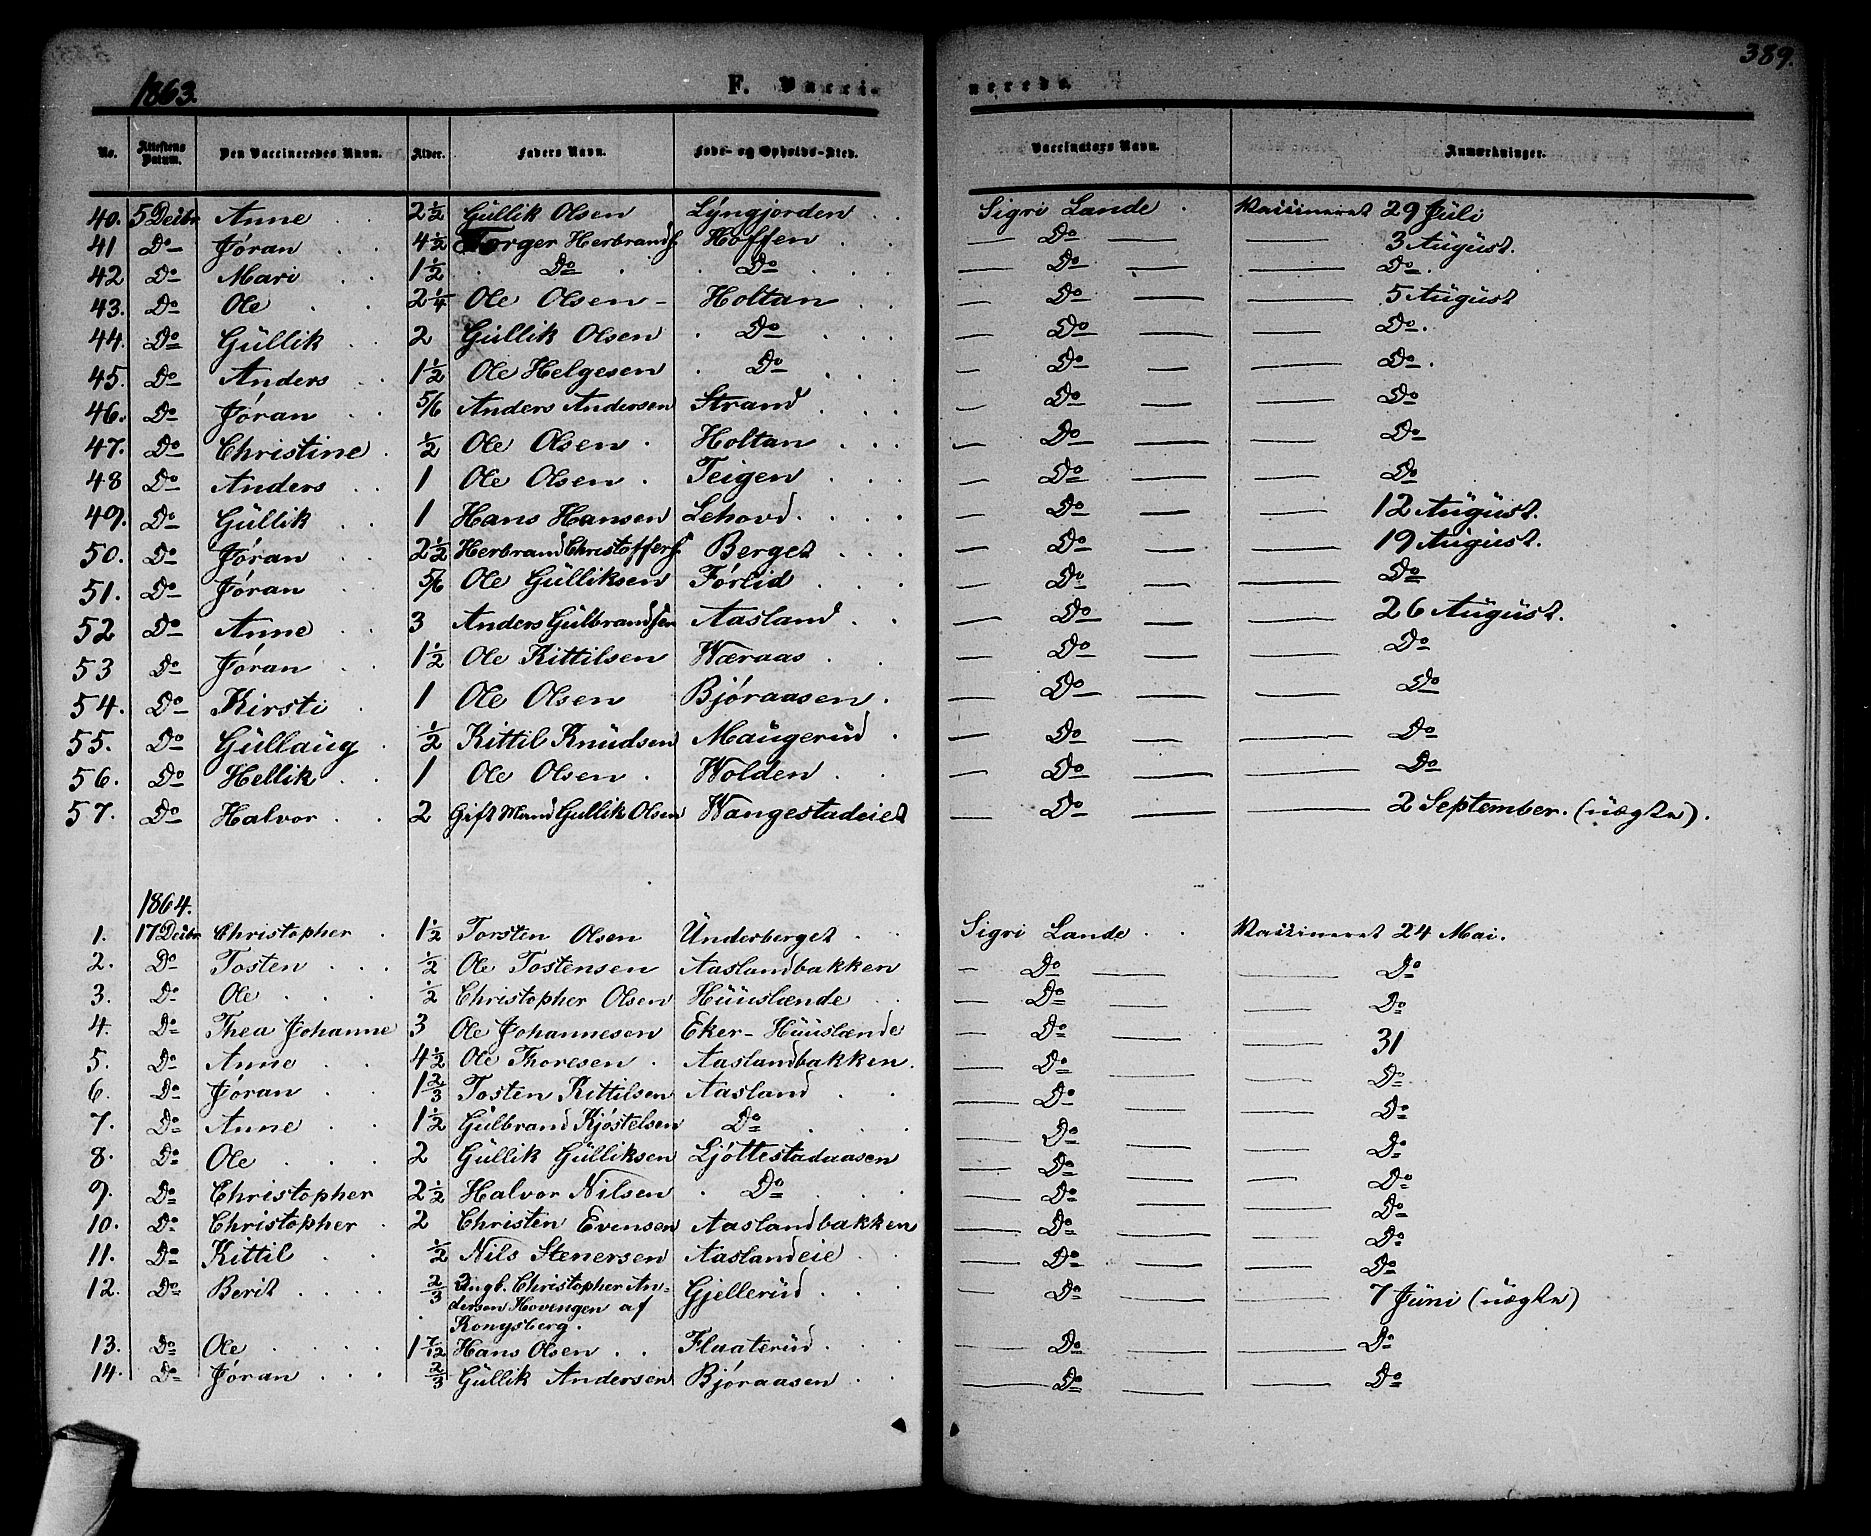 389.
1863. F. Vacci- nerede.
No. Attestens Datum. Den Vaccineredes Navn. Alder. Faders Navn. Føde- og Opholds-Sted. Vaccinators Navn. Anmærkninger.
40. 5 Decbr Anne 2 1/2 Güllik Olsen Lÿngjorden Sigri Lande Vaccineret 29 Jüli
41 Do Jøran 4 1/2 Torger Herbrands. Hoffen Do 3 Aügüst.
42 Do Mari 1 1/2 Do Do Do Do.
43. Do Ole 2 1/4 Ole Olsen Holtan Do 5 Aügüst
44. Do Güllik 2 Güllik Olsen Do Do Do.
45. Do Anders 1 1/2 Ole Helgesen Do Do Do.
46. Do Jøran 5/6 Anders Andersen Strand Do Do
47. Do Christine 1/2 Ole Olsen Holtan Do Do
48 Do Anders 1 Ole Olsen Teigen Do Do
49. Do Güllik 1 Hans Hansen Lehovd Do 12 Aügüst.
50. Do Jøran 2 1/2 Herbrand Christoffers. Berget Do 19 Aügüst.
51. Do Jøran 5/6 Ole Gülliksen Førlid Do Do
52 Do Anne 3 Anders Gülbrandsen Aasland Do 26 Aügüst.
53 Do Jøran 1 1/2 Ole Kittilsen Wæraas Do Do
54. Do Kirsti 1 Ole Olsen Bjøraasen Do Do
55. Do Güllaüg 1/2 Kittil Knüdsen Maügerüd Do Do
56. Do Hellik 1 Ole Olsen Wolden Do Do
57. Do Halvor 2 Gift Mand Gullik Olsen Wangestadeiet Do 2 September. (üægte).
1864.
1. 17 Decbr Christopher 1 1/2 Torsten Olsen Ünderberget Sigri Lande Vaccineret 24 Mai.
2. Do Tosten 1/2 Ole Tostensen Aaslandbakken Do Do
3. Do Ole 1/2 Christopher Olsen Hüüslænde Do Do
4. Do Thea Johanne 3 Ole Johannesen Eker-Hüüslænde Do 31
5. Do Anne 4 1/2 Ole Thoresen Aaslandbakken. Do Do
6. Do Jøran 1 2/3 Tosten Kittilsen Aasland Do Do
7. Do Anne 1 1/2 Gülbrand Kjøstelsen Do Do Do
8. Do Ole 2 Güllik Gülliksen Ljøttestadaasen Do Do
9. Do Christopher 2 1/2 Halvor Nilsen Do Do Do
10. Do Christopher 2 Christen Evensen Aaslandbakken Do Do
11. Do Kittil 1/2 Nils Stenersen Aaslandeie Do Do
12. Do Berit 2/3 Ungk. Christopher An- Gjellerüd Do 7 Jüni (üægte)
dersen Hovengen af
Kongsberg.
13. Do Ole 1 7/12 Hans Olsen Flaaterüd Do Do
14. Do Jøran 2/3 Güllik Andersen Bjøraasen Do Do